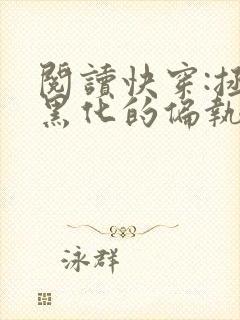 閱讀快穿:拯
黑化的偏執
泳群